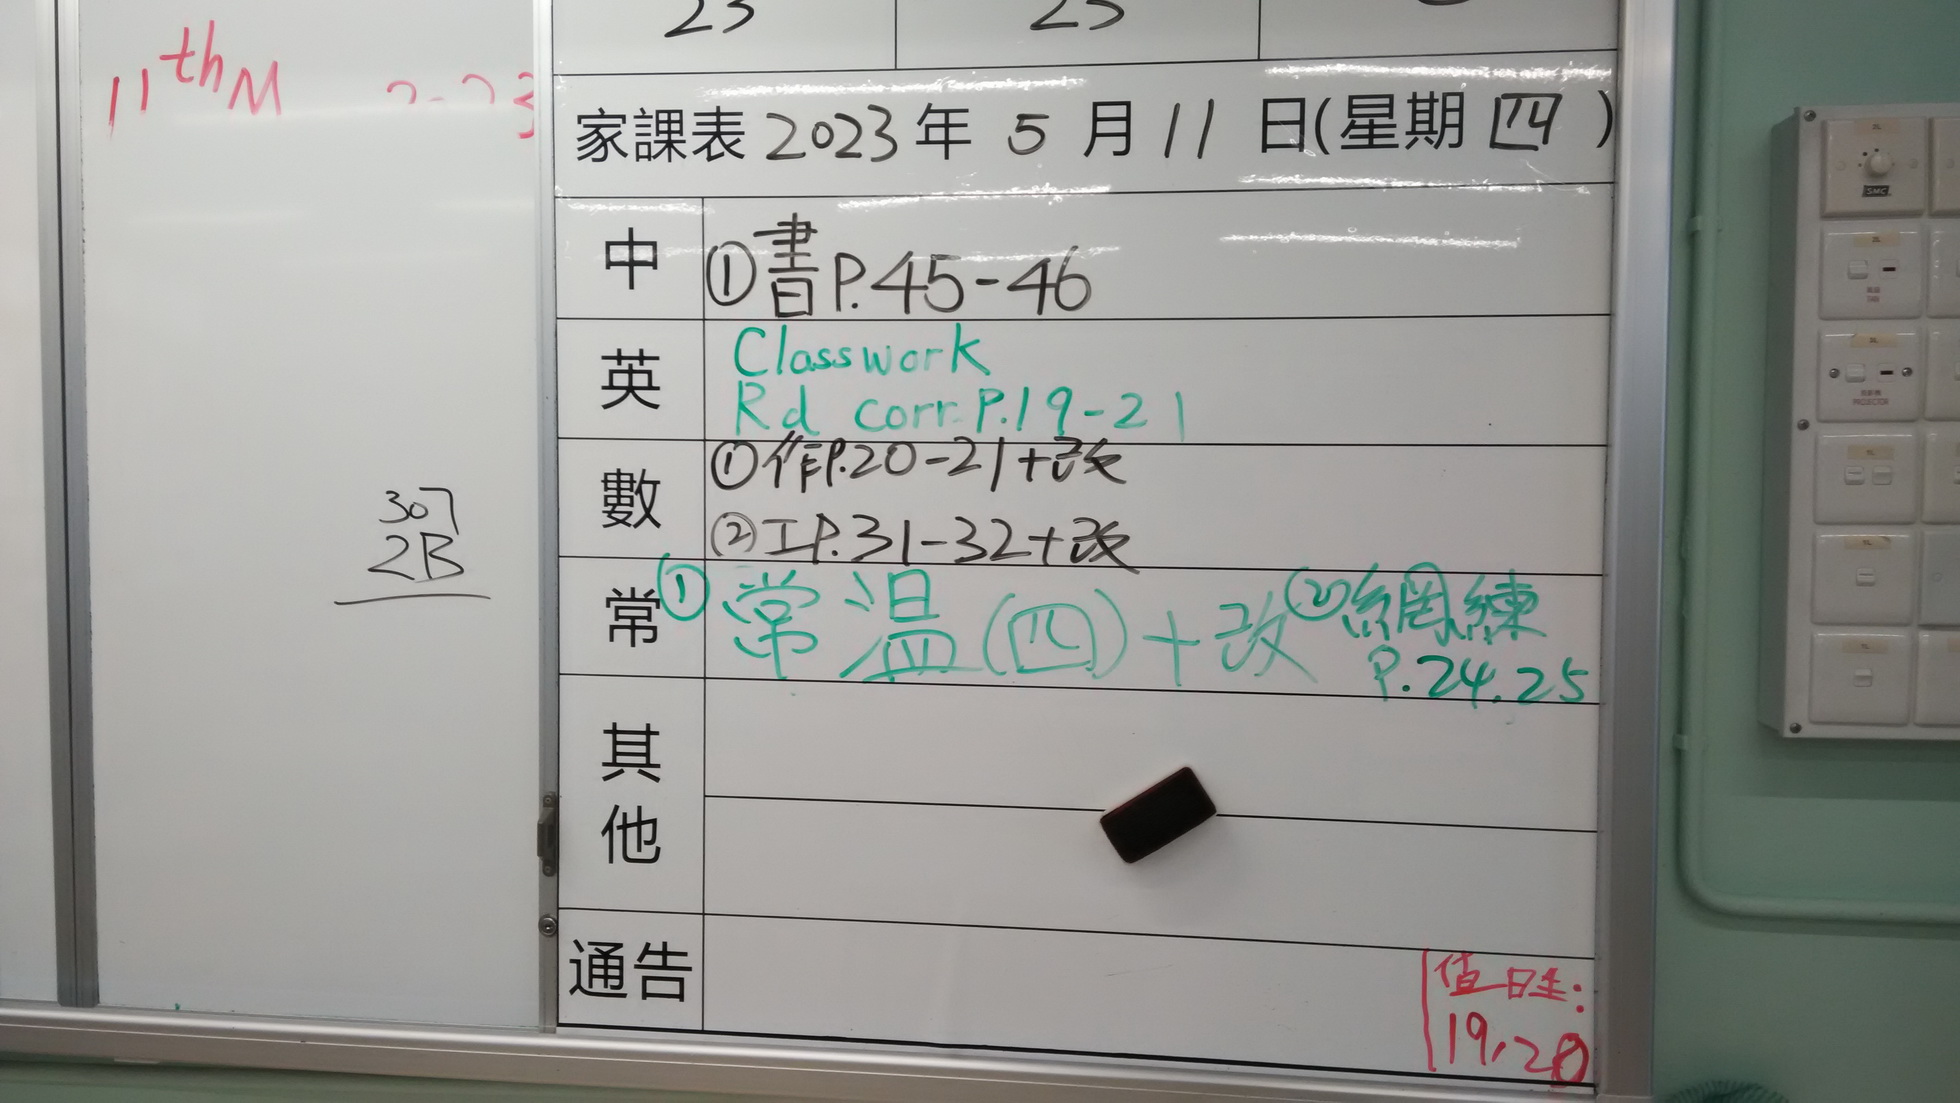 23 23
11th M
家課表 2023 年 5 月 11 日(星期 四 )
中 ①書P.45-46
英 Classwork
Rd corr. P.19-21
數 ①作P.20-21+改
②工P.31-32+改
常 ①常溫(四)+改 ②網練
P.24.25
307
2B
其他
通告
值日生:
19,20
SMC
PROJECTOR